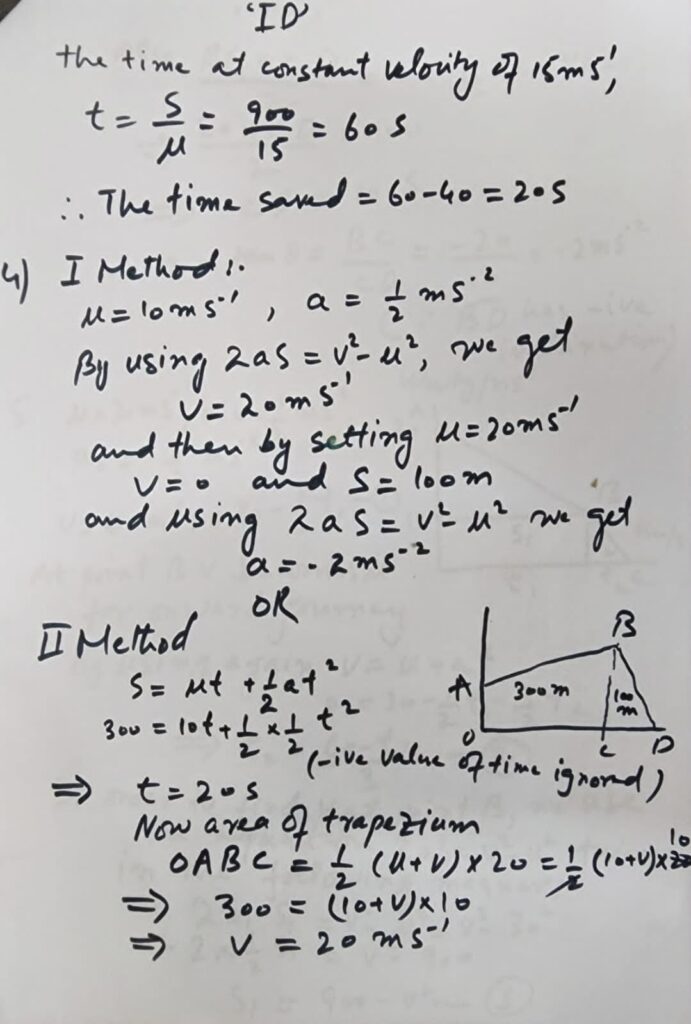 'ID'
the time at constant velocity of 15ms⁻¹,
t = S/u = 900/15 = 60 s
∴ The time saved = 60-40 = 20s
4) I Method:.
u = 10ms⁻¹, a = 1/2 ms⁻²
By using 2aS = v² - u², we get
V = 20ms⁻¹
and then by setting u = 20ms⁻¹
V = 0 and S = 100m
and using 2aS = v² - u² we get
a = -2ms⁻²
OR
II Method
S = ut + 1/2 at²
300 = 10t + 1/2 × 1/2 t²
B
A 300m 100 m
O C D
(-ive value of time ignored)
⇒ t = 20s
Now area of trapezium
OABC = 1/2 (u+v) × 20 = 1/2 (10+v) × 20 10
⇒ 300 = (10+v) × 10
⇒ V = 20 ms⁻¹